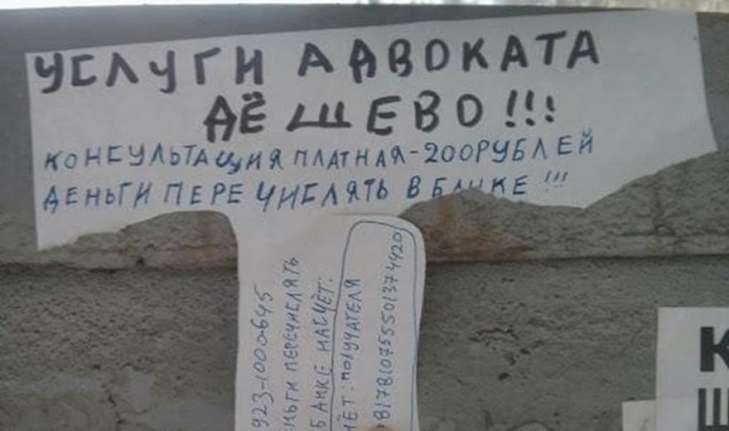 УСЛУГИ АДВОКАТА
ДЁШЕВО!!!
КОНСУЛЬТАЦИЯ ПЛАТНАЯ-200РУБЛЕЙ
ДЕНЬГИ ПЕРЕЧИСЛЯТЬ В БАНКЕ!!!
923-1000-645
НЬГИ ПЕРЕЧИСЛЯТЬ
БАНКЕ НАСЧЁТ:
ЧЁТ-ПОЛУЧАТЕЛЯ
817810755501374420
К
Ш